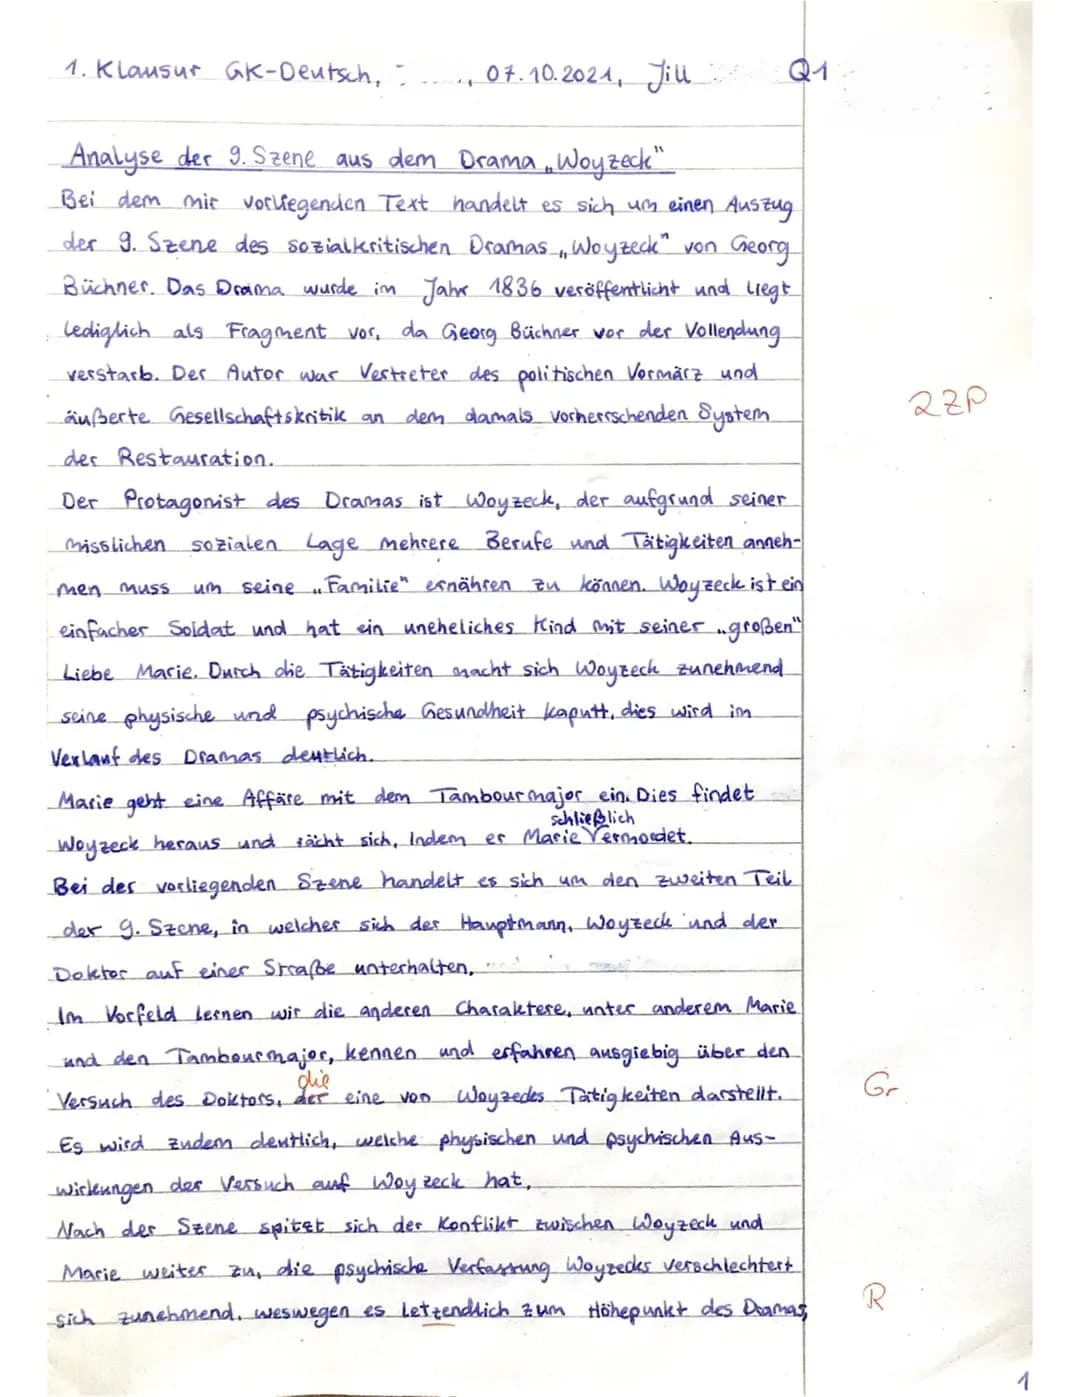 1. Klausur GK-Deutsch, 07.10.2021, Jill Q1
Analyse der 9. Szene aus dem Drama „Woyzeck"
Bei dem mir vorliegenden Text handelt es sich um einen Auszug
der 9. Szene des sozialkritischen Dramas „Woyzeck" von Georg
Büchner. Das Drama wurde im Jahr 1836 veröffentlicht und liegt
lediglich als Fragment vor, da Georg Büchner vor der Vollendung
verstarb. Der Autor war Vertreter des politischen Vormärz und
2ZP
äußerte Gesellschaftskritik an dem damals vorherrschenden System
der Restauration.
Der Protagonist des Dramas ist Woyzeck, der aufgrund seiner
misslichen sozialen Lage mehrere Berufe und Tätigkeiten anneh-
men muss um seine „Familie" ernähren zu können. Woyzeck ist ein
einfacher Soldat und hat ein uneheliches Kind mit seiner „großen"
Liebe Marie. Durch die Tätigkeiten macht sich Woyzeck zunehmend
seine physische und psychische Gesundheit kaputt, dies wird im
Verlauf des Dramas deutlich.
Marie geht eine Affäre mit dem Tambourmajor ein. Dies findet
schließlich
Woyzeck heraus und rächt sich, Indem er Marie Vermordet.
Bei der vorliegenden Szene handelt es sich um den zweiten Teil
der 9. Szene, in welcher sich der Hauptmann, Woyzeck und der
Doktor auf einer Straße unterhalten.
Im Vorfeld lernen wir die anderen Charaktere, unter anderem Marie
und den Tambourmajor, kennen und erfahren ausgiebig über den
die
Versuch des Doktors, der eine von Woyzecks Tätigkeiten darstellt.
Gr
Es wird zudem deutlich, welche physischen und psychischen Aus-
wirkungen der Versuch auf Woyzeck hat.
Nach der Szene spitzt sich der Konflikt zwischen Woyzeck und
Marie weiter zu, die psychische Verfassung Woyzecks verschlechtert
sich zunehmend, weswegen es letzendlich zum Höhepunkt des Dramas
R
1